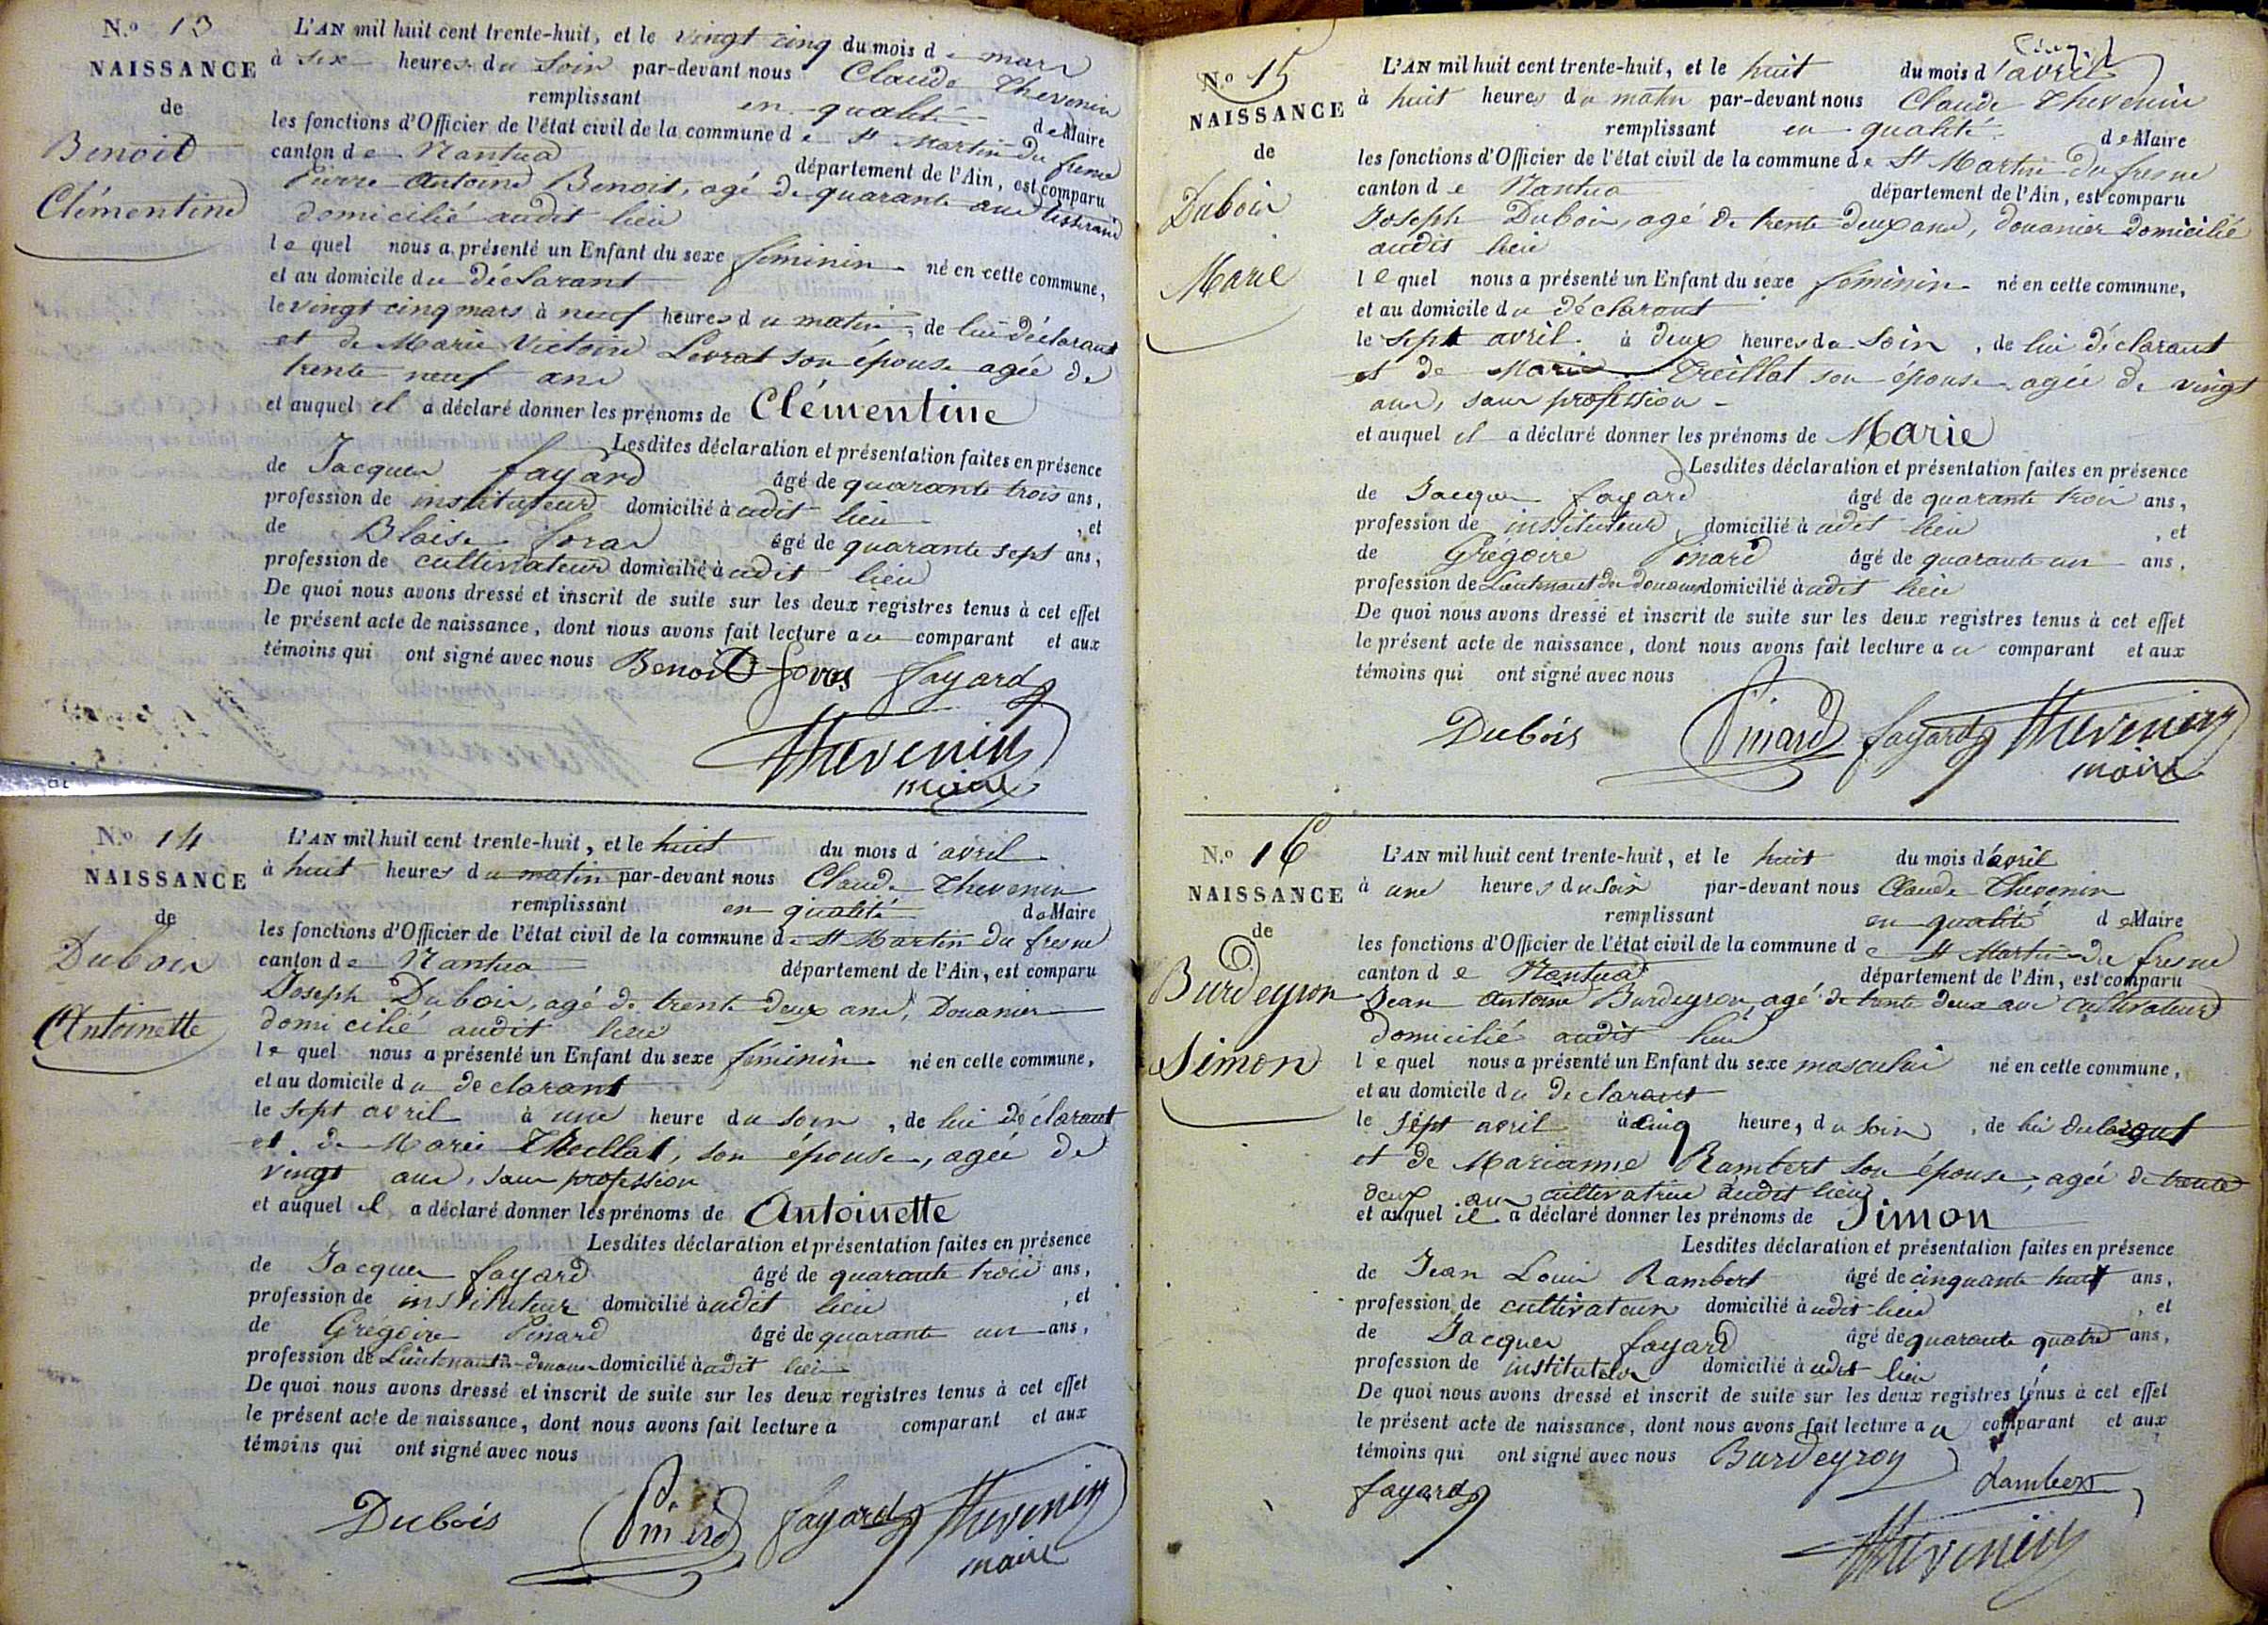 N.º 13
NAISSANCE
de
Benoit
Clémentine
L'AN mil huit cent trente-huit, et le vingt cinq du mois de mars
à six heures du soir par-devant nous Claude Thevenin
remplissant en qualité de Maire
les fonctions d'Officier de l'état civil de la commune de St Martin du fresne
canton de Nantua département de l'Ain, est comparu
Pierre Antoine Benoit, agé de quarante ans tisserand
domicilié audit lieu
lequel nous a présenté un Enfant du sexe féminin né en cette commune,
et au domicile du déclarant
le vingt cinq mars à neuf heures du matin, de lui déclarant
et de Marie Victoire Levrat son épouse agée de
trente neuf ans
et auquel il a déclaré donner les prénoms de Clémentine
Lesdites déclaration et présentation faites en présence
de Jacques fayard âgé de quarante trois ans,
profession de instituteur domicilié audit lieu, et
de Blaise foras âgé de quarante sept ans,
profession de cultivateur domicilié audit lieu
De quoi nous avons dressé et inscrit de suite sur les deux registres tenus à cet effet
le présent acte de naissance, dont nous avons fait lecture au comparant et aux
témoins qui ont signé avec nous Benoit foras fayard
Thevenin
maire
N.º 14
NAISSANCE
de
Dubois
Antoinette
L'AN mil huit cent trente-huit, et le huit du mois d'avril
à huit heures du matin par-devant nous Claude Thevenin
remplissant en qualité de Maire
les fonctions d'Officier de l'état civil de la commune de St Martin du fresne
canton de Nantua département de l'Ain, est comparu
Joseph Dubois, agé de trente deux ans, Douanier
domicilié audit lieu
lequel nous a présenté un Enfant du sexe féminin né en cette commune,
et au domicile du declarant
le sept avril à une heure du soir, de lui déclarant
et de Marie Treillat, son épouse, agée de
vingt ans, sans profession
et auquel il a déclaré donner les prénoms de Antoinette
Lesdites déclaration et présentation faites en présence
de Jacques fayard âgé de quarante trois ans,
profession de instituteur domicilié audit lieu, et
de Grégoire Pinard âgé de quarante un ans,
profession de Lieutenant de douanes domicilié audit lieu
De quoi nous avons dressé et inscrit de suite sur les deux registres tenus à cet effet
le présent acte de naissance, dont nous avons fait lecture a comparant et aux
témoins qui ont signé avec nous
Dubois Pinard fayard Thevenin
maire
N.º 15
NAISSANCE
de
Dubois
Marie
L'AN mil huit cent trente-huit, et le huit du mois d'avril
à huit heures du matin par-devant nous Claude Thevenin
remplissant en qualité de Maire
les fonctions d'Officier de l'état civil de la commune de St Martin du fresne
canton de Nantua département de l'Ain, est comparu
Joseph Dubois, agé de trente deux ans, douanier domicilié
audit lieu
lequel nous a présenté un Enfant du sexe féminin né en cette commune,
et au domicile du déclarant
le sept avril à deux heures du soir, de lui déclarant
et de Marie Treillat son épouse, agée de vingt
ans, sans profession
et auquel il a déclaré donner les prénoms de Marie
Lesdites déclaration et présentation faites en présence
de Jacques fayard âgé de quarante trois ans,
profession de instituteur domicilié audit lieu, et
de Grégoire Pinard âgé de quarante un ans,
profession de Lieutenant de douanes domicilié audit lieu
De quoi nous avons dressé et inscrit de suite sur les deux registres tenus à cet effet
le présent acte de naissance, dont nous avons fait lecture au comparant et aux
témoins qui ont signé avec nous
Dubois Pinard fayard Thevenin
maire
N.º 16
NAISSANCE
de
Burdeyron
Simon
L'AN mil huit cent trente-huit, et le huit du mois d'avril
à une heures du soir par-devant nous Claude Thevenin
remplissant en qualité de Maire
les fonctions d'Officier de l'état civil de la commune de St Martin du fresne
canton de Nantua département de l'Ain, est comparu
Jean Antoine Burdeyron, agé de trente deux ans cultivateur
domicilié audit lieu
lequel nous a présenté un Enfant du sexe masculin né en cette commune,
et au domicile du declarant
le sept avril à cinq heures du soir, de lui declarant
et de Marianne Rambert son épouse, agée de trente
deux ans cultivatrice audit lieu
et auquel il a déclaré donner les prénoms de Simon
Lesdites déclaration et présentation faites en présence
de Jean Louis Rambert âgé de cinquante huit ans,
profession de cultivateur domicilié audit lieu, et
de Jacques fayard âgé de quarante quatre ans,
profession de instituteur domicilié audit lieu
De quoi nous avons dressé et inscrit de suite sur les deux registres tenus à cet effet
le présent acte de naissance, dont nous avons fait lecture au comparant et aux
témoins qui ont signé avec nous Burdeyron
fayard Rambert
Thevenin